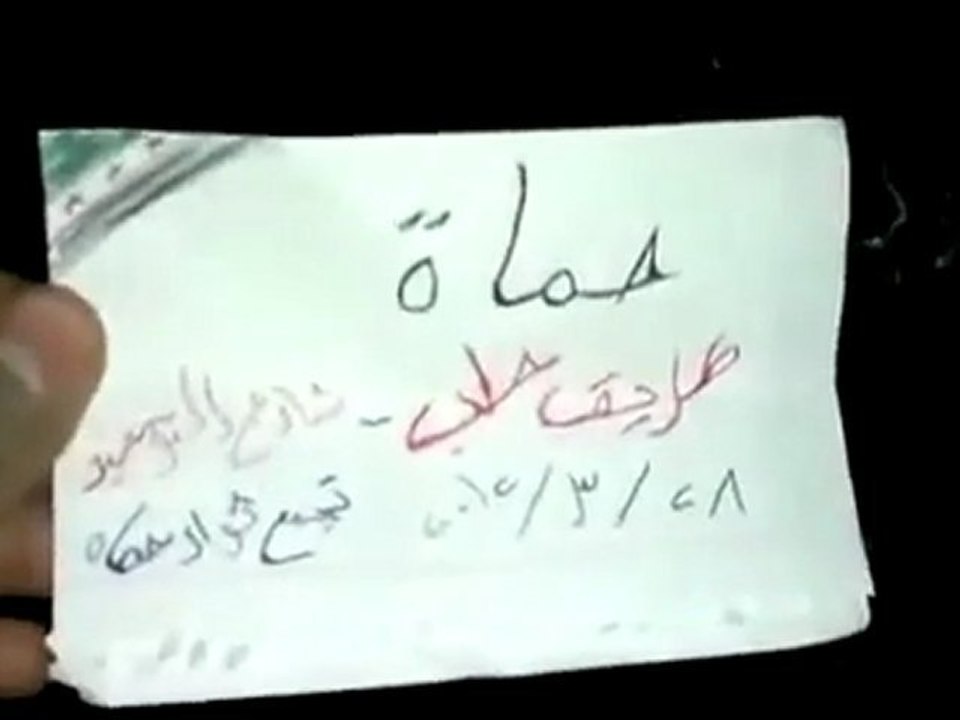 حماة
طريق حلب - شارع التوحيد
٢٨ / ٣ / ٢٠١٢
تجمع ثوار حماة